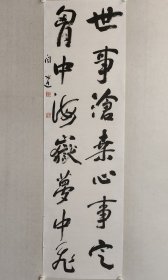 世事沧桑心事定
胸中海嶽夢中飛